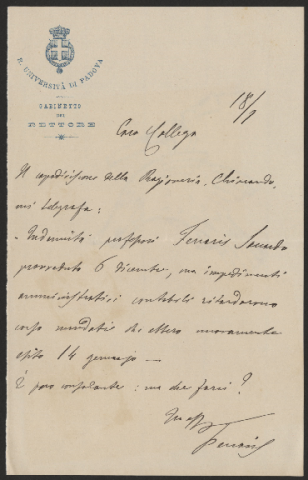 R. UNIVERSITÀ DI PADOVA
GABINETTO
DEL
RETTORE
18/1
Caro Collega
Il capodivisione della Ragioneria, Chimando,
mi telegrafa:
"Indennità professori Ferraris Saccardo
provveduto 6 dicembre, ma impedimenti
amministrativi contabili ritardarono
corso mandati che ebbero
esito 14 gennajo —
È poco consolante: ma che farci?
Ferraris